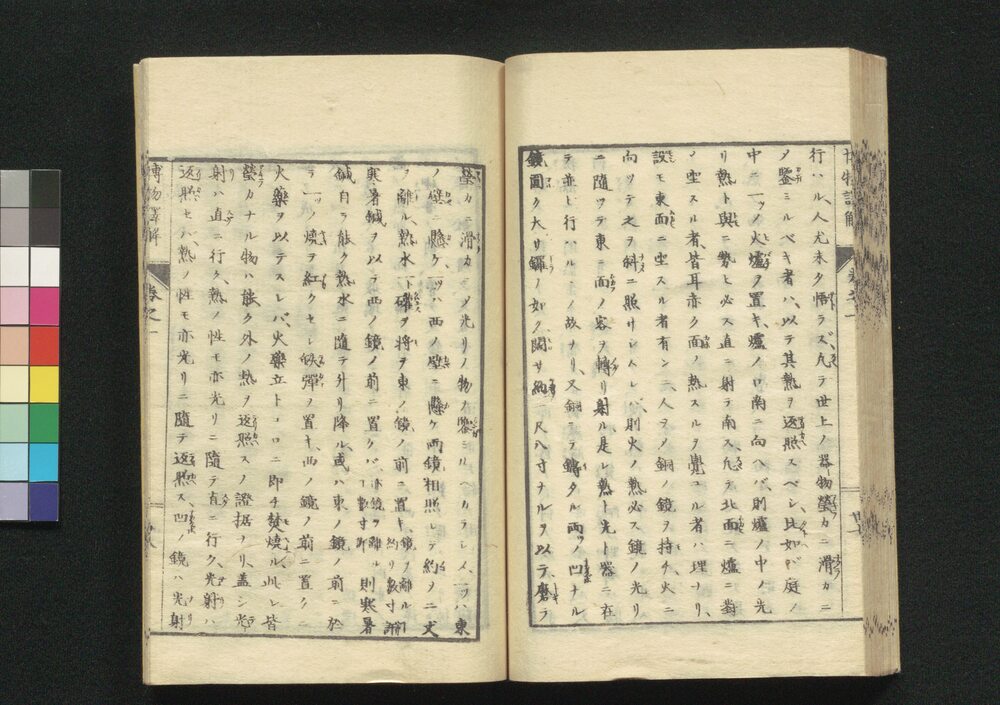 博物譯解 卷之一
行ハル、人尤未タ悟ラズ、凡テ世上ノ器物瑩カニ滑カニ
〆鑒ミルベキ者ハ、以テ其熱ヲ返照スベシ、比如バ庭ノ
中ニ一ツノ火爐ヲ置キ、爐ノ口南ニ向ヘバ則爐ノ中ノ光
リ熱ト與ニ勢ヒ必ス直ニ射テ南ス、凢テ北面ニ爐ニ對
〆坐スル者、皆耳亦ク面ノ熱スルヲ覺ユル者ハ理ナリ、
設モ東面ニ坐スル者有ン二、人ヲ〆銅ノ鏡ヲ持チ火ニ
向ツテ之ヲ斜ニ照サシムレバ、則火ノ熱必ス鏡ノ光リ
ニ隨ツテ東ニ面ノ容ヲ轉リ射ル、是レ熱ト光ト器ニ在
テ並ヒ行ハルヽノ故ナリ、又銅ニテ鑄タル兩ツノ凹ナル
鏡圓ク大サ鑼ノ如ク闊サ約一尺八寸ナルヲ以テ磨テ
瑩カニ滑カニ〆光リノ物ヲ鑒ミルベカラシメ、一ツハ東
ノ壁ニ懸ケ一ツハ西ノ壁ニ懸ケ兩鏡相照シテ約ヲニ丈
ヲ離ル、熱水一罐ヲ將ヲ東ノ鏡ノ前ニ置キ、鏡ノ離ル約リ數寸許
寒暑鍼ヲ以テ西ノ鏡ノ前ニ置クバ、亦鏡ヲ離ル丁數寸許 則寒暑
鍼自ラ能ク熱水ニ隨テ升リ降ル、或ハ東ノ鏡ノ前ニ於
ラ一ツノ燒ヲ紅クセシ鉄彈ヲ置キ、西ノ鏡ノ前ニ置クニ
火藥ヲ以テスレバ、火藥立トコロニ即チ焚燒ル、此レ皆
瑩カナル物ハ能ク外ノ熱ヲ返照スノ證據ヲリ、蓋シ光
射ハ直ニ行ク、熱ノ性モ亦光リニ隨テ直ニ行ク、光射ハ
返照セバ、熱ノ性モ亦光リニ隨テ返照ス、凹ノ鏡ハ光射
博物譯解 卷之一